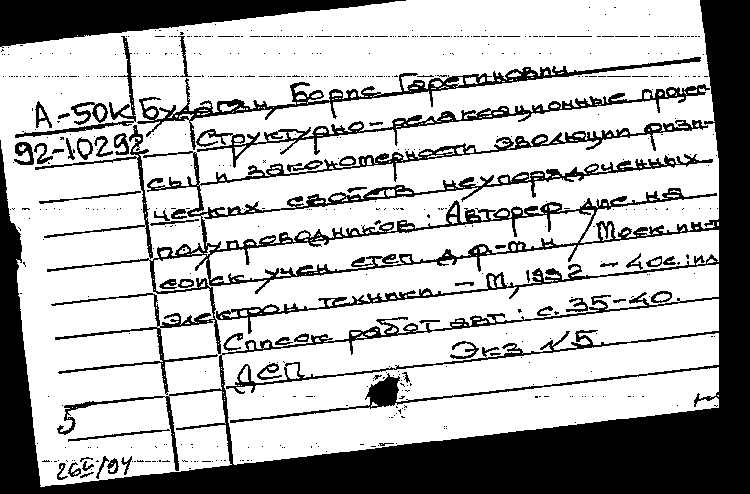 А-50К Будагян, Борис Гарегинович.
92-10292 Структурно-релаксационные процес-
сы и закономерности эволюции физи-
ческих свойств неупорядоченных
полупроводников: Автореф. дис. на
соиск. учен. степ. д.ф-м.н / Моск. ин-т
электрон. техники. - М., 1992 - 40с.: ил
Список работ авт.: с. 35-40.
ДСП. Экз. №5.
5
26 /94